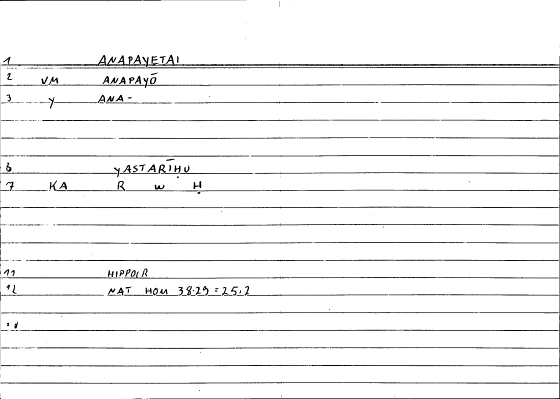 1 ANAPAYETAI
2 VM ANAPAYŌ
3 Y ANA-
6 yASTARĪḤU
7 KA R W Ḥ
11 HIPPOCR
12 NAT HOM 38.29 = 25,2